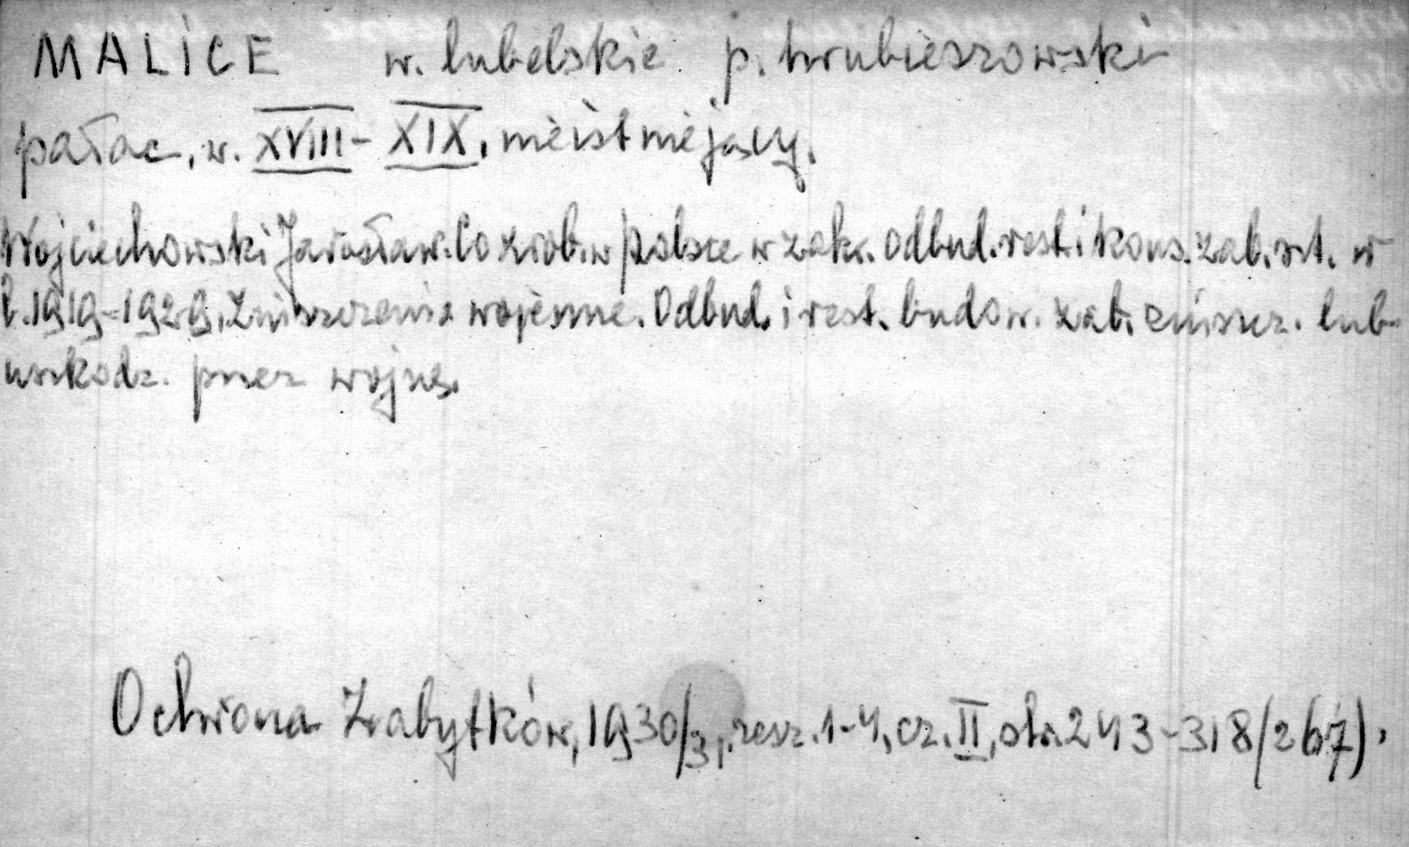 MALICE w. lubelskie p. hrubieszowski
pałac, w. XVIII-XIX, nieistniejący.
Wojciechowski Jarosław. Co zrob. w Polsce w zakr. odbud. rest. i kons. zab. szt. w
l. 1919-1929, Zniszczenia wojenne. Odbud. i rest. budow. zab. zniszcz. lub
uszkodz. przez wojnę.
Ochrona Zabytków, 1930/31, zesz. 1-4, cz. II, str. 243-318/267).